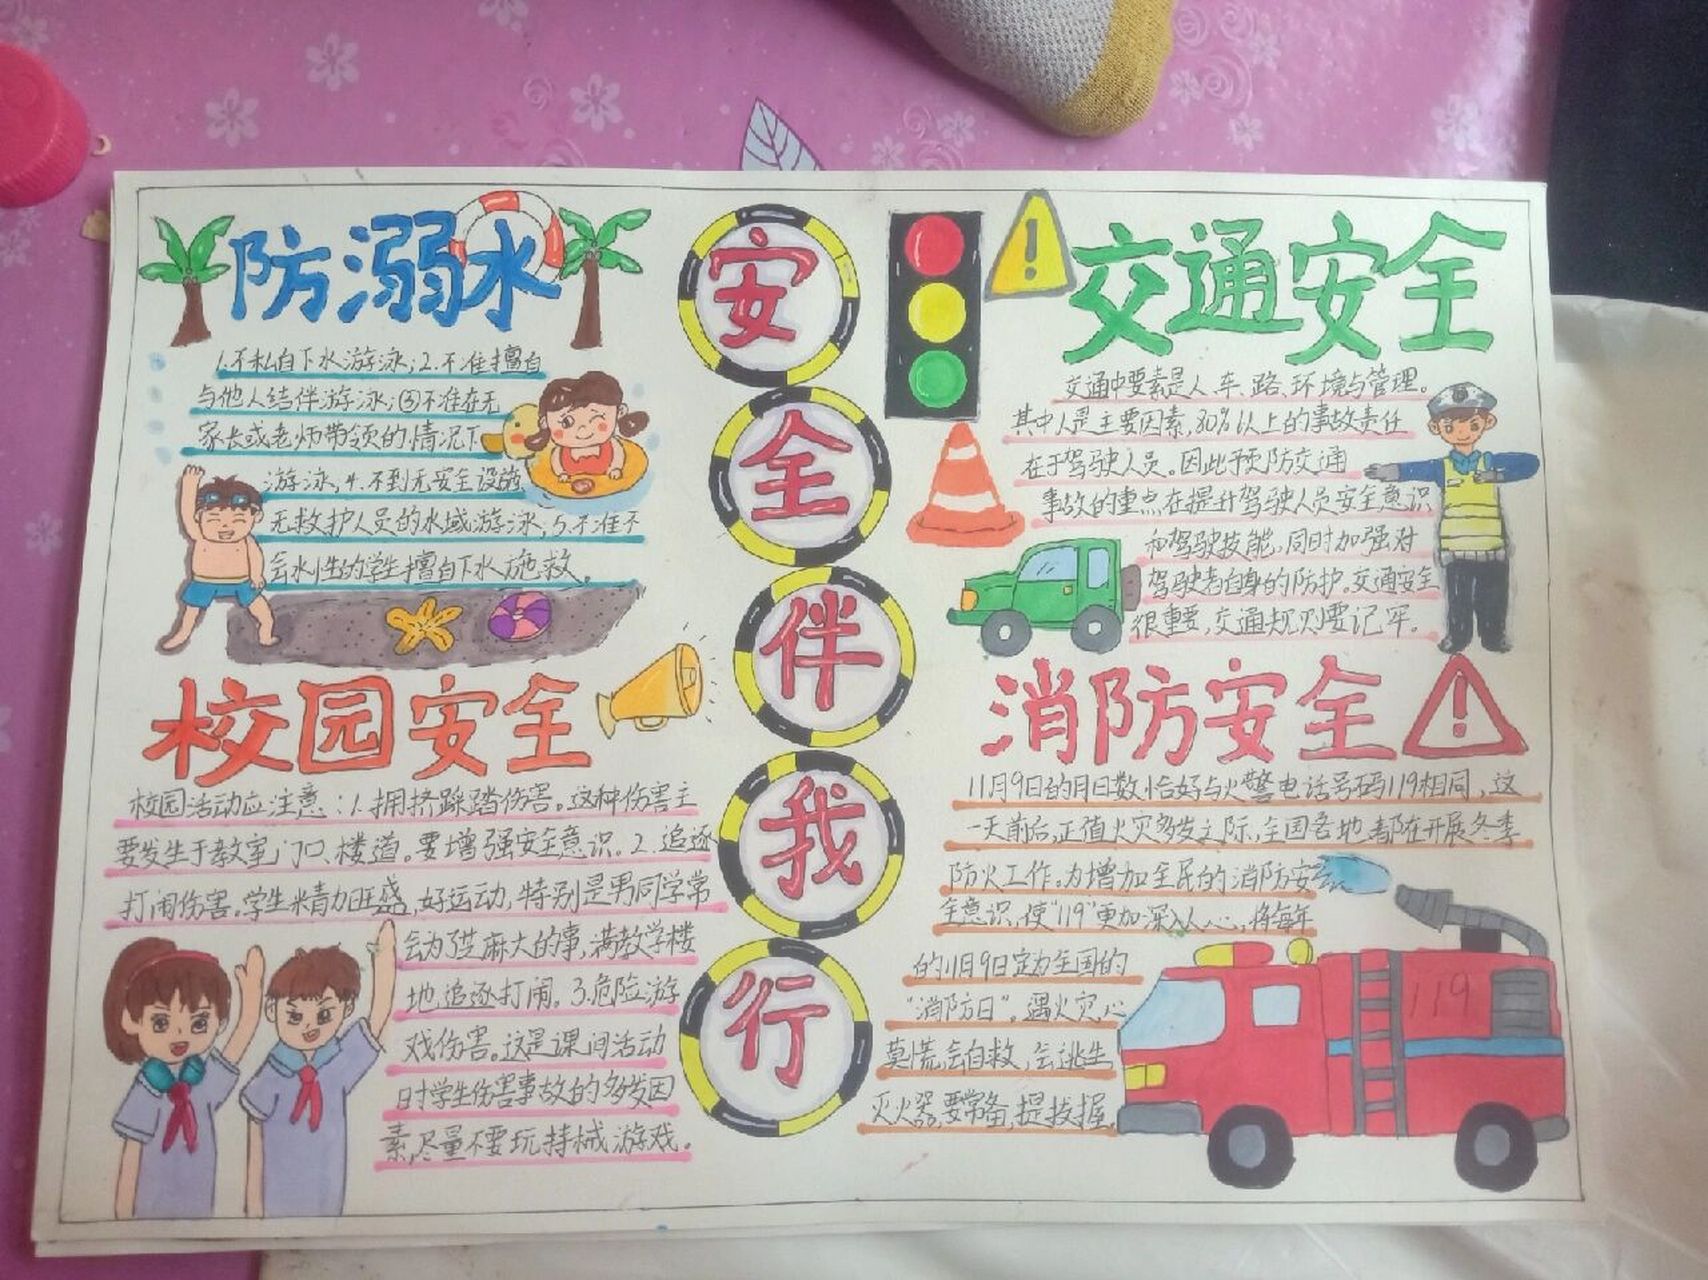 防溺水
1.不私自下水游泳;2.不准擅自
与他人结伴游泳;③不准在无
家长或老师带领的情况下
游泳;4.不到无安全设施
无救护人员的水域游泳;5.不准不
会水性的学生擅自下水施救。
校园安全
校园活动应注意:1.拥挤踩踏伤害。这种伤害主
要发生于教室门口、楼道。要增强安全意识。2.追逐
打闹伤害。学生精力旺盛,好运动,特别是男同学常
会为了芝麻大的事,满教学楼
地追逐打闹。3.危险游
戏伤害。这是课间活动
时学生伤害事故的多发因
素,尽量不要玩持械游戏。
安
全
伴
我
行
交通安全
交通中要素是人、车、路、环境与管理。
其中人是主要因素,80%以上的事故责任
在于驾驶人员。因此预防交通
事故的重点在提升驾驶人员安全意识
和驾驶技能,同时加强对
驾驶者自身的防护。交通安全
很重要,交通规则要记牢。
消防安全
11月9日的月日数恰好与火警电话号码119相同,这
一天前后,正值火灾多发之际,全国各地都在开展冬季
防火工作。为增加全民的消防安
全意识,使“119”更加深入人心,将每年
的11月9日定为全国的
“消防日”。遇火灾心
莫慌,会自救,会逃生
灭火器,要常备,提拔握
119